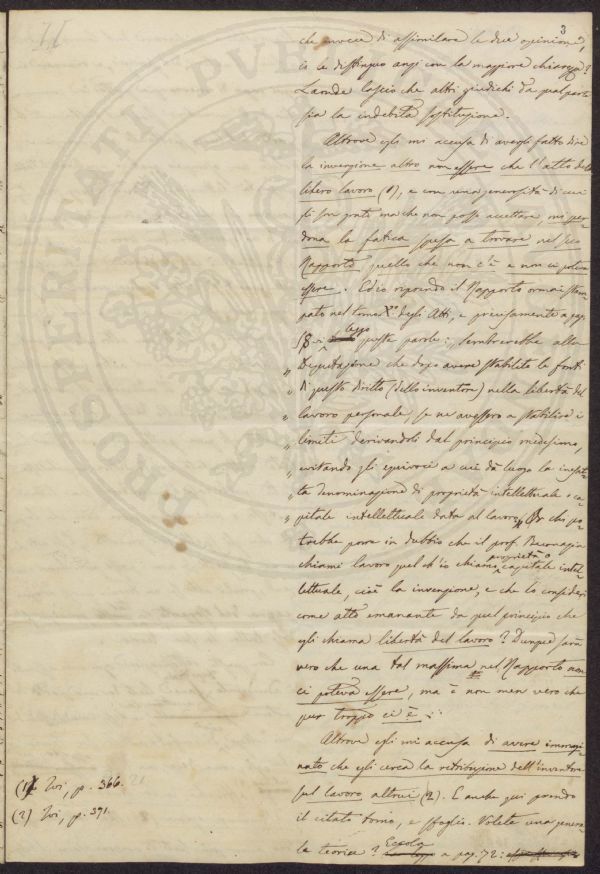 3
che invece di assimilare le due opinioni,
io le distinguo anzi con la maggiore chiarezza?
Laonde lascio che altri giudichi da qual parte
sia la indebita sostituzione.
Altrove egli mi accusa di avergli fatto dire
la invenzione altro non essere che l'atto del
libero lavoro (1), e con una generosità di cui
gli son grato ma che non posso accettare, mi per-
dona la fatica spesa a trovare nel suo
Rapporto quello che non c'è e non ci poteva
essere. Ed io riprendo il Rapporto ormai stam-
pato nel tomo X.º degli Atti, e precisamente a pag.
18 leggo queste parole: Sembrerebbe alla
„ Deputazione che dopo avere stabilito le fonti
„ di questo diritto (dello inventore) nella libertà del
„ lavoro personale, se ne avessero a stabilire i
„ limiti derivandoli dal principio medesimo,
„ evitando gli equivoci a cui dà luogo la inesat-
„ ta denominazione di proprietà intellettuale o ca-
„ pitale intellettuale data al lavoro„ Or chi po-
trebbe porre in dubbio che il prof. Buonazia
chiami lavoro quel ch'io chiamo proprietà o capitale intel-
lettuale, cioè la invenzione, e che lo consideri
come atto emanante da quel principio che
egli chiama libertà del lavoro? Dunque sarà
vero che una tal massima nel Rapporto non
ci poteva essere, ma è non men vero che
pur troppo ci è.
Altrove egli mi accusa di avere immagi-
nato che egli cerca la retribuzione dell'inventore
sul lavoro altrui (2). E anche qui prendo
il citato tomo, e sfoglio. Volete una genera-
le teorica? Eccola a pag. 72:
(1) Ivi, p. 366.
(2) Ivi, p. 391.
PROSPERITATI PVBLICAE